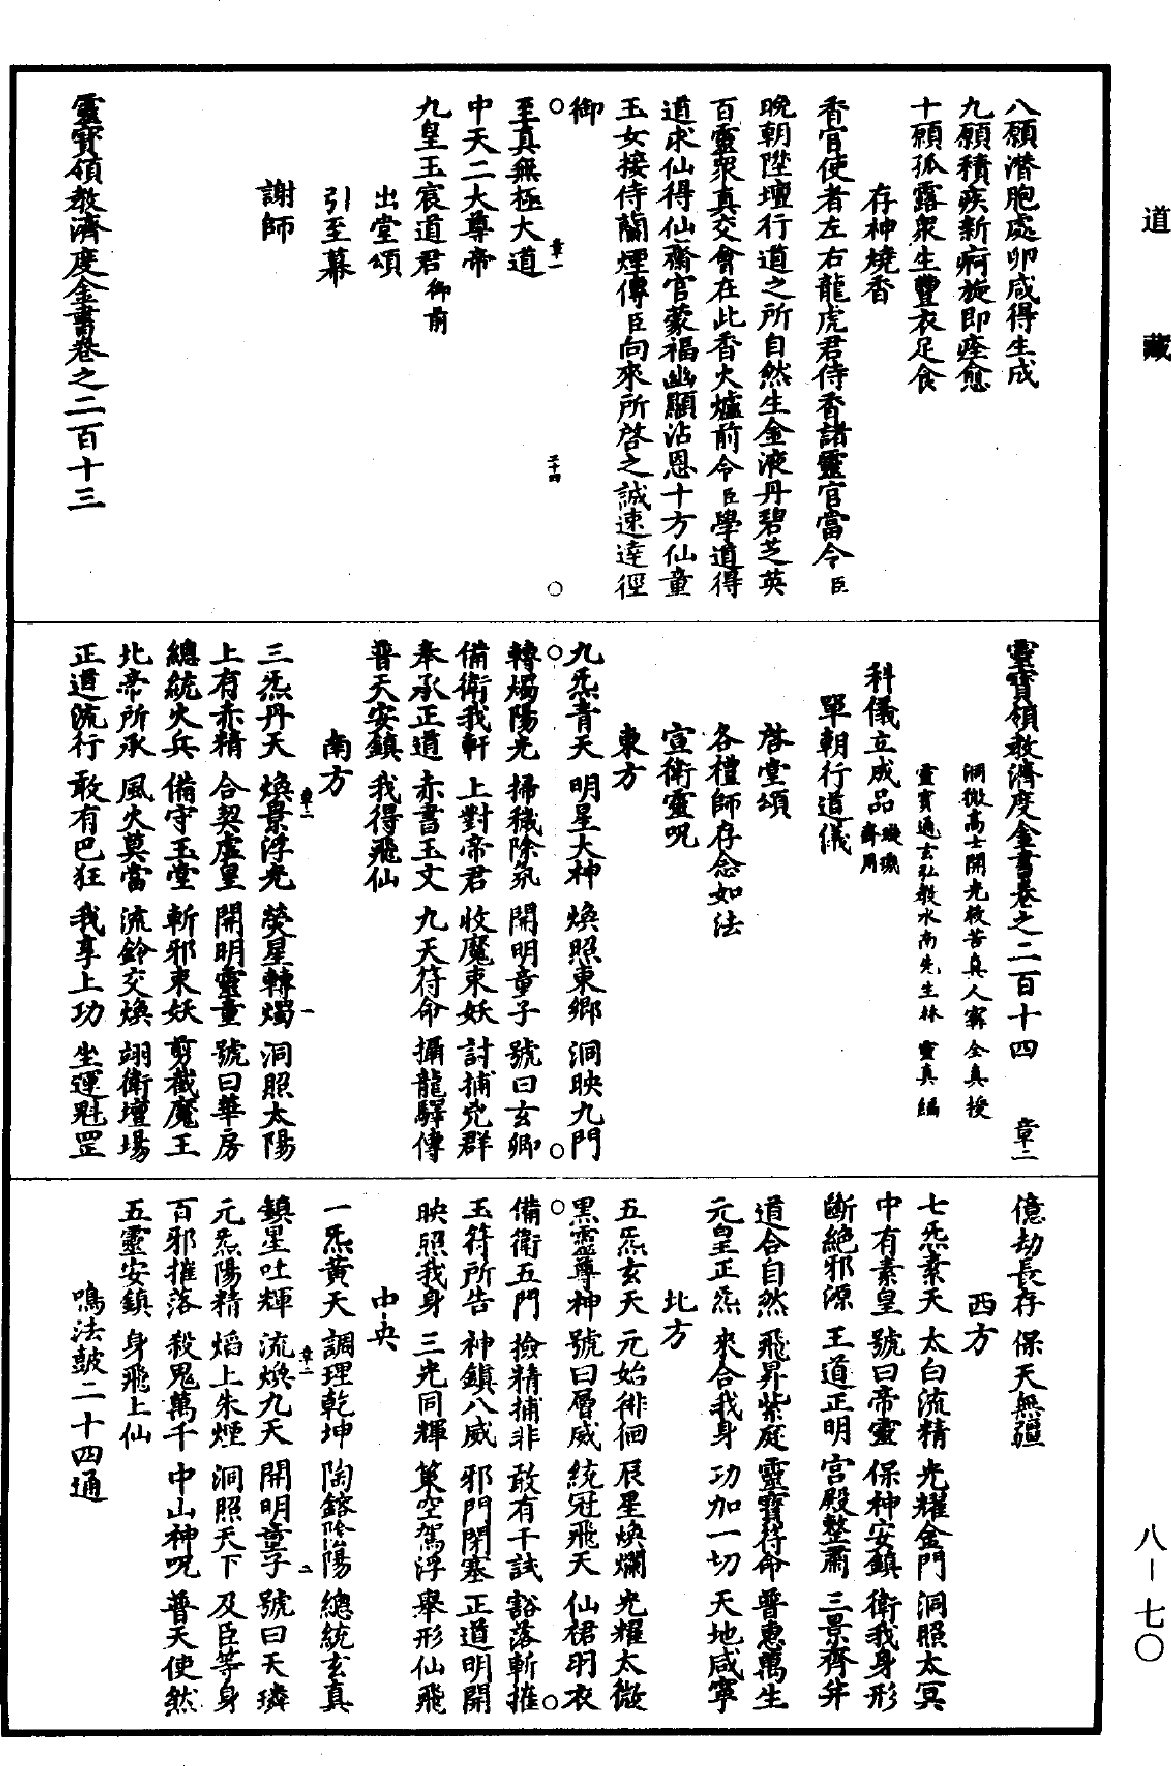 道藏
八願潜胞處卵咸得生成
九願積疾新痾旋即痊愈
十願孤露衆生豐衣足食
存神燒香
香官使者左右龍虎君侍香諸靈官當令臣
晚朝陞壇行道之所自然生金液丹碧芝英
百靈衆真交會在此香火爐前令臣學道得
道求仙得仙齋官蒙福幽顯沾恩十方仙童
玉女接侍蘭煙傳臣向來所啓之誠速達徑
御
至真無極大道
章一
二十四
中天二大尊帝
九皇玉宸道君御前
出堂頌
引至幕
謝師
靈寶領教濟度金書卷之二百十三
靈寶領教濟度金書卷之二百十四 章二
洞微高士開光救苦真人甯全真授
靈寶通玄弘教水南先生林靈真編
科儀立成品璇璣齋用
單朝行道儀
啓堂頌
各禮師存念如法
宣衛靈呪
東方
九炁青天 明星大神 煥照東鄉 洞映九門
轉燭陽光 掃穢除氛 開明童子 號曰玄卿
備衛我軒 上對帝君 收魔束妖 討捕兇群
奉承正道 赤書玉文 九天符命 攝龍驛傳
普天安鎮 我得飛仙
南方
章二
一
三炁丹天 煥景浮光 熒星轉燭 洞照太陽
上有赤精 合契虛皇 開明靈童 號曰華房
總統火兵 備守玉堂 斬邪束妖 剪截魔王
北帝所承 風火莫當 流鈴交煥 翊衛壇場
正道流行 敢有巴狂 我享上功 坐運魁罡
億劫長存 保天無疆
西方
七炁素天 太白流精 光耀金門 洞照太冥
中有素皇 號曰帝靈 保神安鎮 衛我身形
斷絕邪源 王道正明 宮殿整肅 三景齊并
道合自然 飛昇紫庭 靈寶符命 普惠萬生
元皇正炁 來合我身 功加一切 天地咸寧
北方
五炁玄天 元始徘徊 辰星煥爛 光耀太微
黑靈尊神 號曰層威 統冠飛天 仙裙羽衣
備衛五門 撿精捕非 敢有干試 豁落斬摧
玉符所告 神鎮八威 邪門閉塞 正道明開
映照我身 三光同輝 策空駕浮 舉形仙飛
中央
一炁黃天 調理乾坤 陶鎔陰陽 總統玄真
章二
二
鎮星吐輝 流煥九天 開明童子 號曰天璘
元炁陽精 焰上朱煙 洞照天下 及臣等身
百邪摧落 殺鬼萬千 中山神呪 普天使然
五靈安鎮 身飛上仙
鳴法鼓二十四通
八—七〇